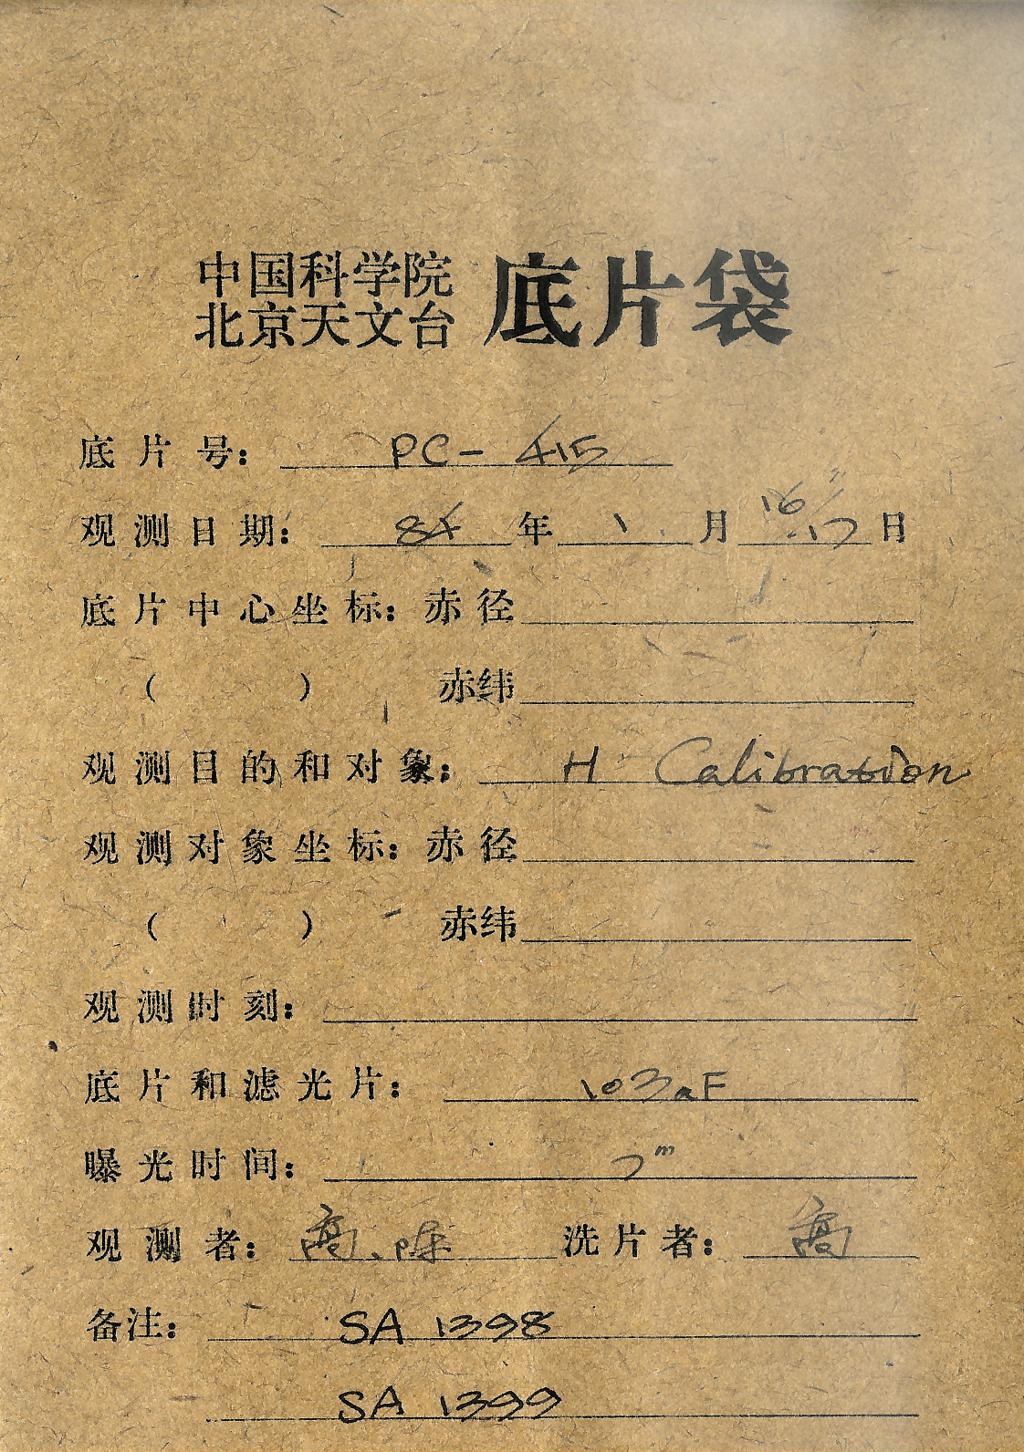 中国科学院
北京天文台 底片袋
底片号: PC-415
观测日期: 84年1月16/17日
底片中心坐标: 赤径
( ) 赤纬
观测目的和对象: H Calibration
观测对象坐标: 赤径
( ) 赤纬
观测时刻:
底片和滤光片: 103aF
曝光时间: 7m
观测者: 高、陈 洗片者: 高
备注: SA 1398
SA 1399